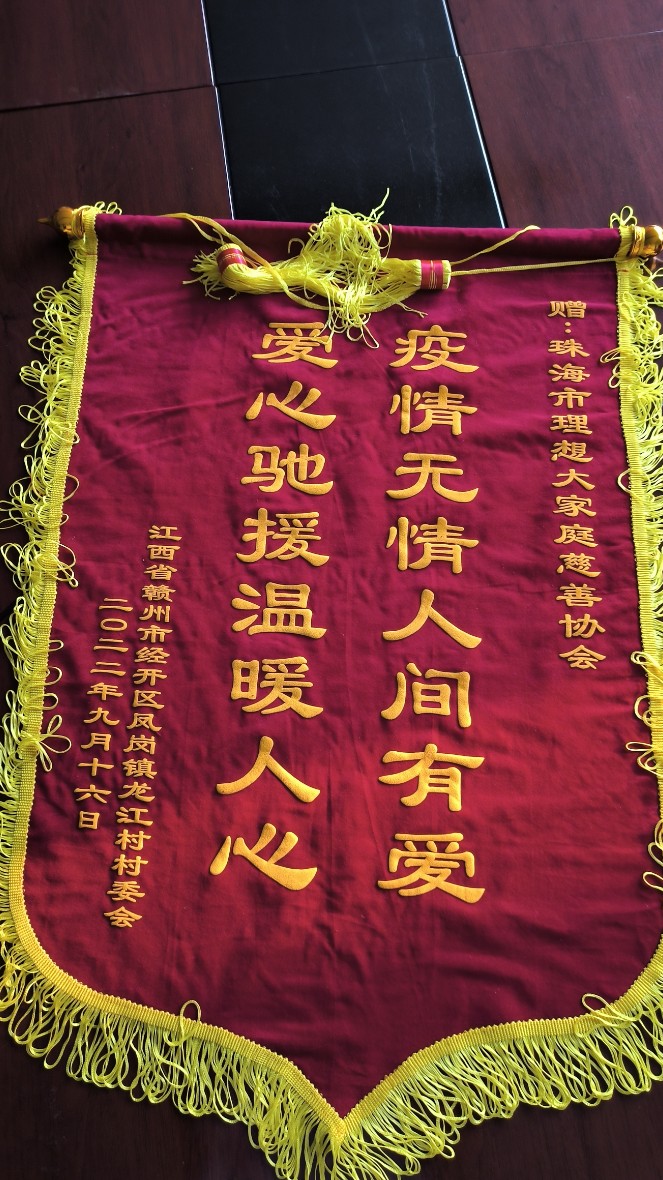 赠：珠海市理想大家庭慈善协会
疫情无情人间有爱
爱心驰援温暖人心
江西省赣州市经开区凤岗镇龙江村村委会
二〇二二年九月十六日